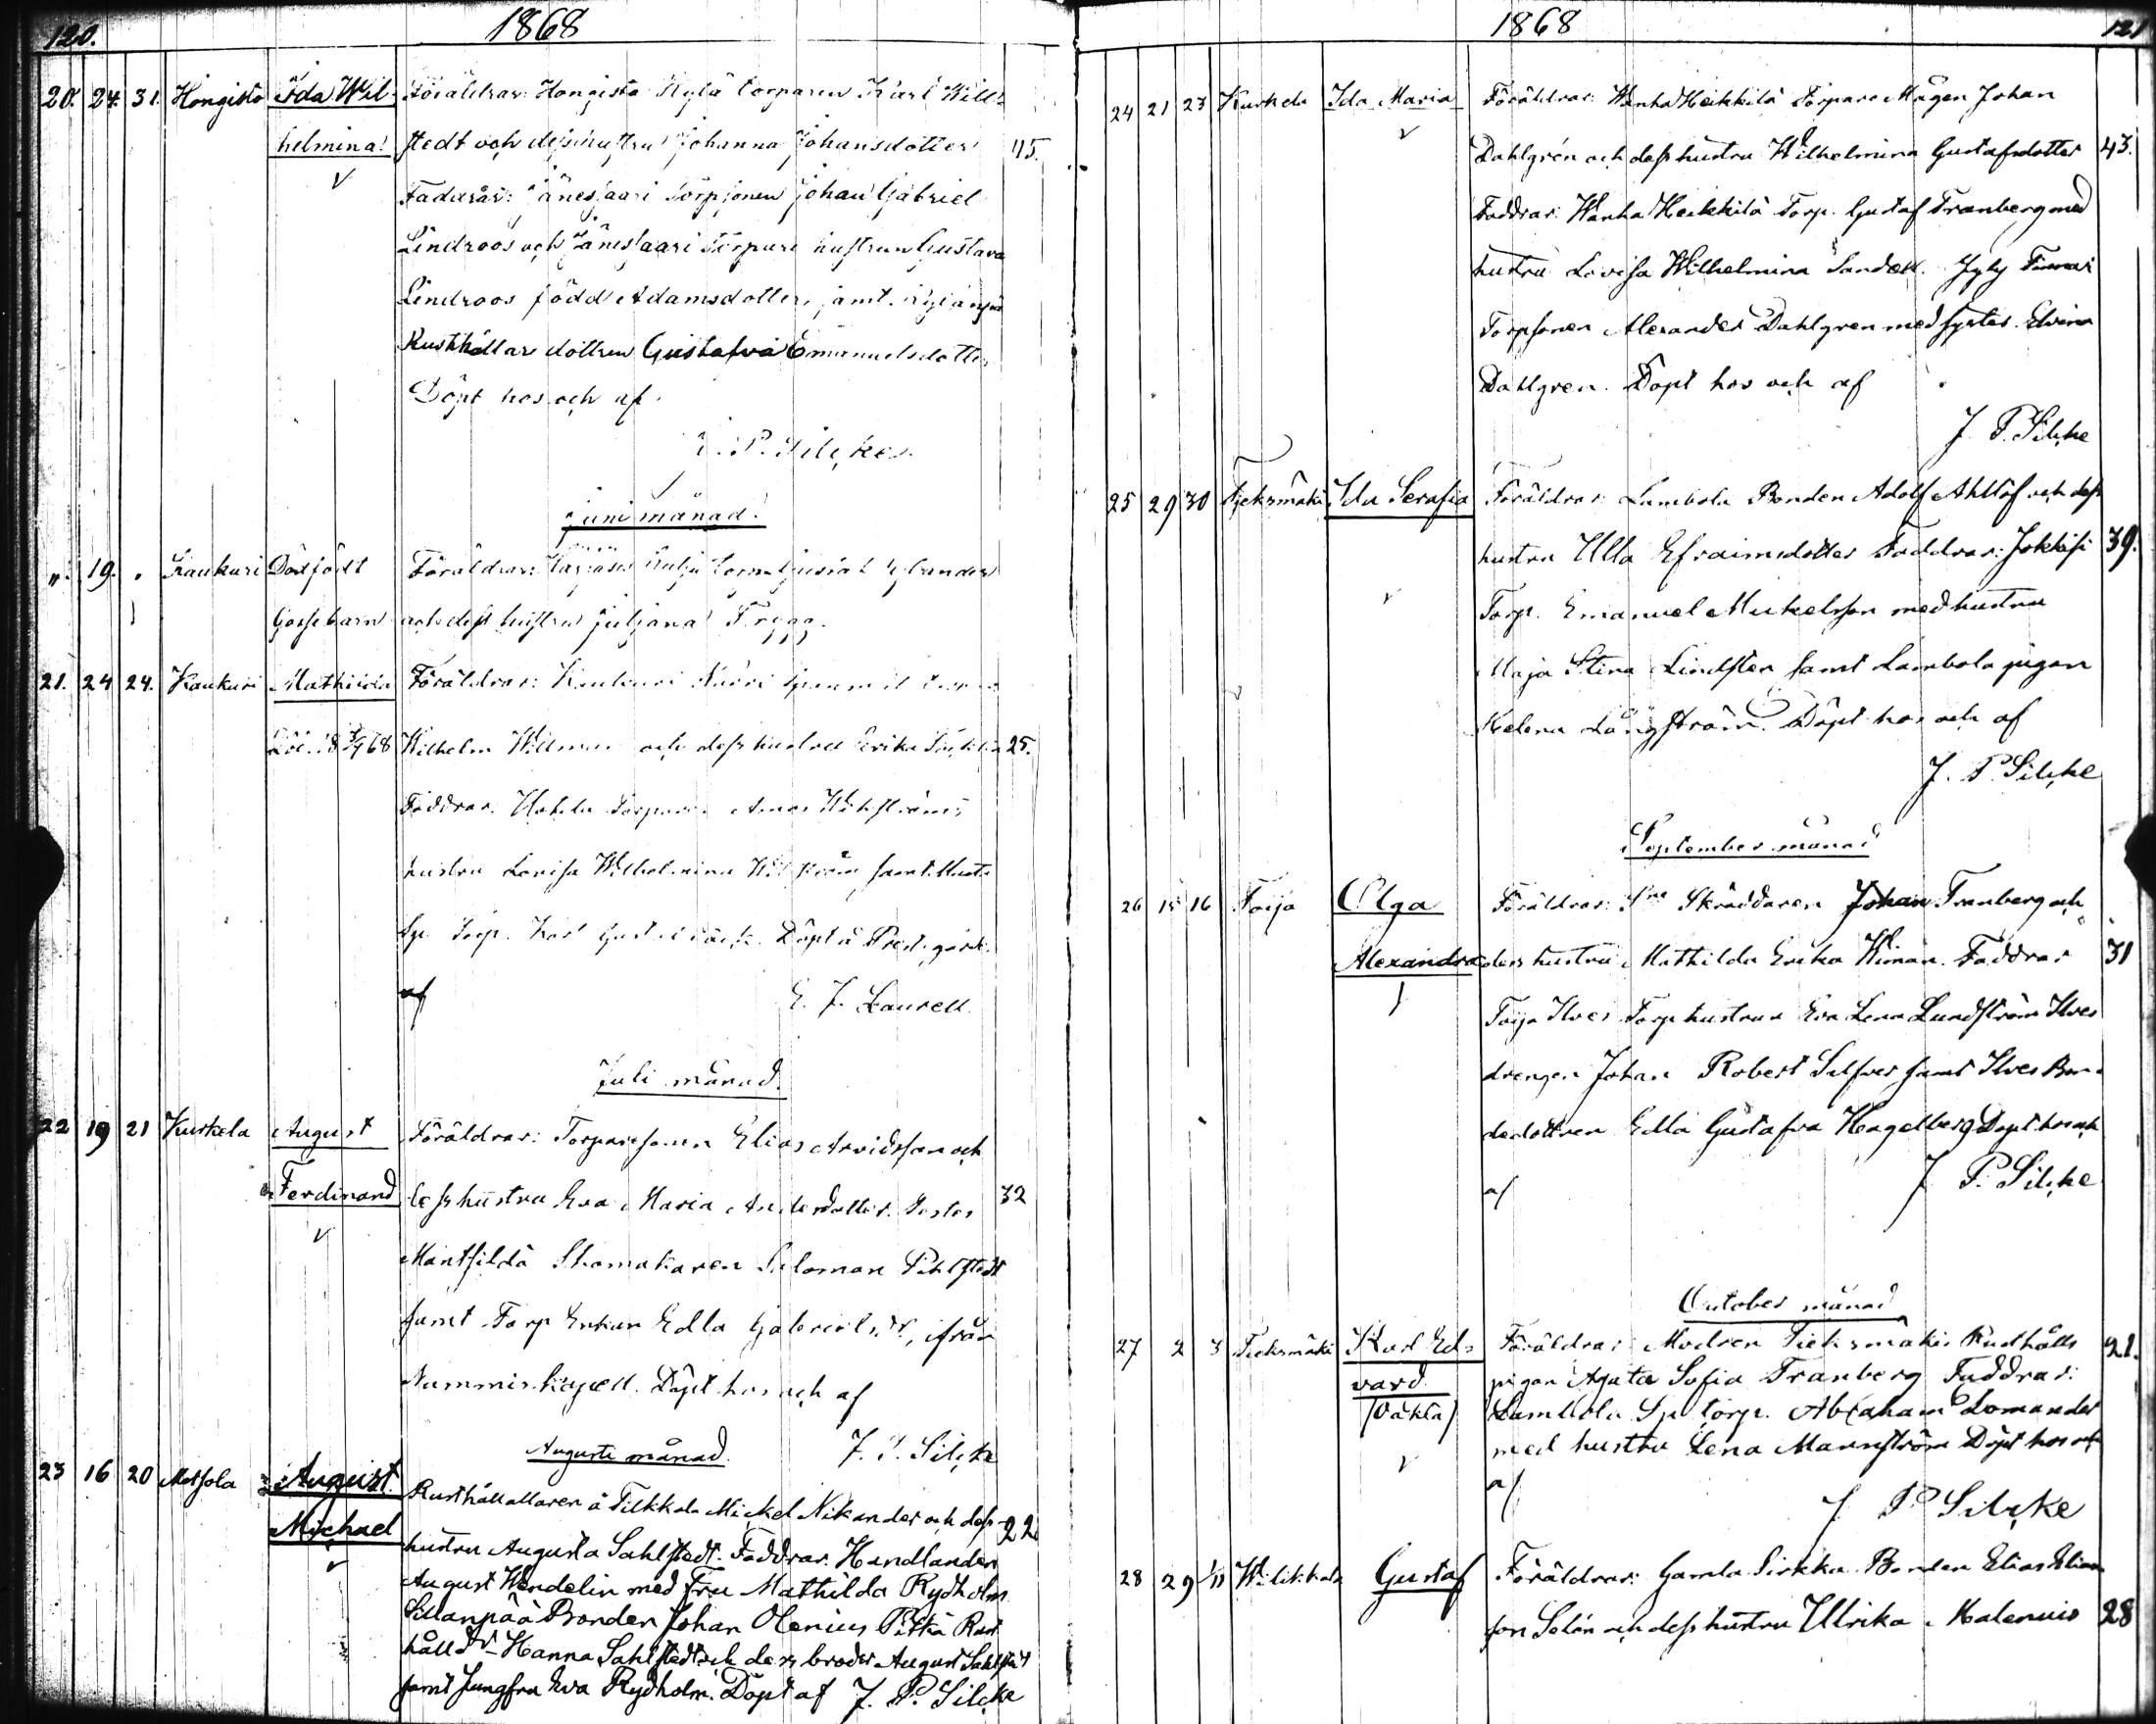 120.
1868
20. 24. 31. Hongisto Ida Wil- Föräldrar: Hongisto Kylä torparen Karl Will-
helmina stedt och dess hustru Johanna Johansdotter 45.
Faddrar: Jänesaari Torpsonen Johan Gabriel
Lindroos och Jänesaari Torpare hustrun Gustava
Lindroos född Adamsdotter, samt
Rusthållar dottren Gustafva Emanuelsdotter
Döpt hos och af
J. P. Silcke
Juni månad.
". 19. " Kaukuri Dödfödt Föräldrar:
Gossebarn och dess hustru Juliana Trygg.
21. 24 24. Kaukuri Mathilda Föräldrar: Kaukuri
68 Wilhelm Willman och dess hustru Erika 25.
Faddrar.
hustru Lovisa Wilhelmina samt
Torp. Karl Döpt å Prest gård.
af E. J. Laurell
Juli månad.
22 19 21 Kurkela August Föräldrar: Torparesonen Elias Arvidsson och
Ferdinand dess hustru Eva Maria Andersdotter. 32
Mantsilda Skomakaren Salomon Pihlstedt
samt Torp Enkan Edla Gabrielsdr, ifrån
Nummis kapell. Döpt hos och af
J. P. Silcke
Augusti månad.
23 16 20 Metsola August Rusthållallaren å Tilkkala Mickel Nikander och dess 22
Michael hustru Augusta Sahlstedt. Faddrar. Handlanden
August Wendelin med Fru Mathilda Rydholm
Sillanpää Bonden Johan Olenius Pitkä Rust
håll dr Hanna Sahlstedt och dess broder August Sahlstedt
samt Jungfru Eva Rydholm. Döpt af J. P. Silcke
1868
121
24 21 23 Kurkela Ida Maria Föräldrar: Wanha Heikkilä Torpare Mågen Johan
Dahlgren och dess hustru Wilhelmina Gustafsdotter 43.
Faddrar: Wanha Heikkilä Torp. Gustaf Tranberg med
hustru Lovisa Wilhelmina Sandell.
Torpsonen Alexander Dahlgren med syster Elvira
Dahlgren. Döpt hos och af
J. P. Silcke
25 29 30 Tieksmäki Ida Serafia Föräldrar: Lambola Bonden Adolf Ahllöf och dess
hustru Ulla Efraimsdotter Faddrar: Jokkisi 39.
Torp. Emanuel Mickelsson med hustru
Maja Stina Lindsten samt Lambola pigan
Helena Långström. Döpt hos och af
J. P. Silcke
September månad
26 15 16 Toija Olga Föräldrar: Sne Skräddaren Johan Tranberg och
Alexandra dess hustru Mathilda Erika Wiman. Faddrar 31
Toija Ilves Torp hustrun Eva Lena Lundström Ilves
drengen Johan Robert Silfver samt Ilves Bon-
dedottren Edla Gustafva Hagelberg Döpt hos och
af J. P. Silcke
October månad
27 2 3 Tieksmäki Karl Ed- Föräldrar: Modren Tieksmäki Rusthålls 21.
vard pigan Agata Sofia Tranberg Faddrar:
(oäkta) Lambola Sp torp. Abraham Lomander
med hustru Lena Mannström Döpt hos och
af
J. P. Silcke
28 29 1/11 Wilikkala Gustaf Föräldrar: Gamla Sirkka Bonden Elias Elias
son Selén och dess hustru Ulrika Malenius 28